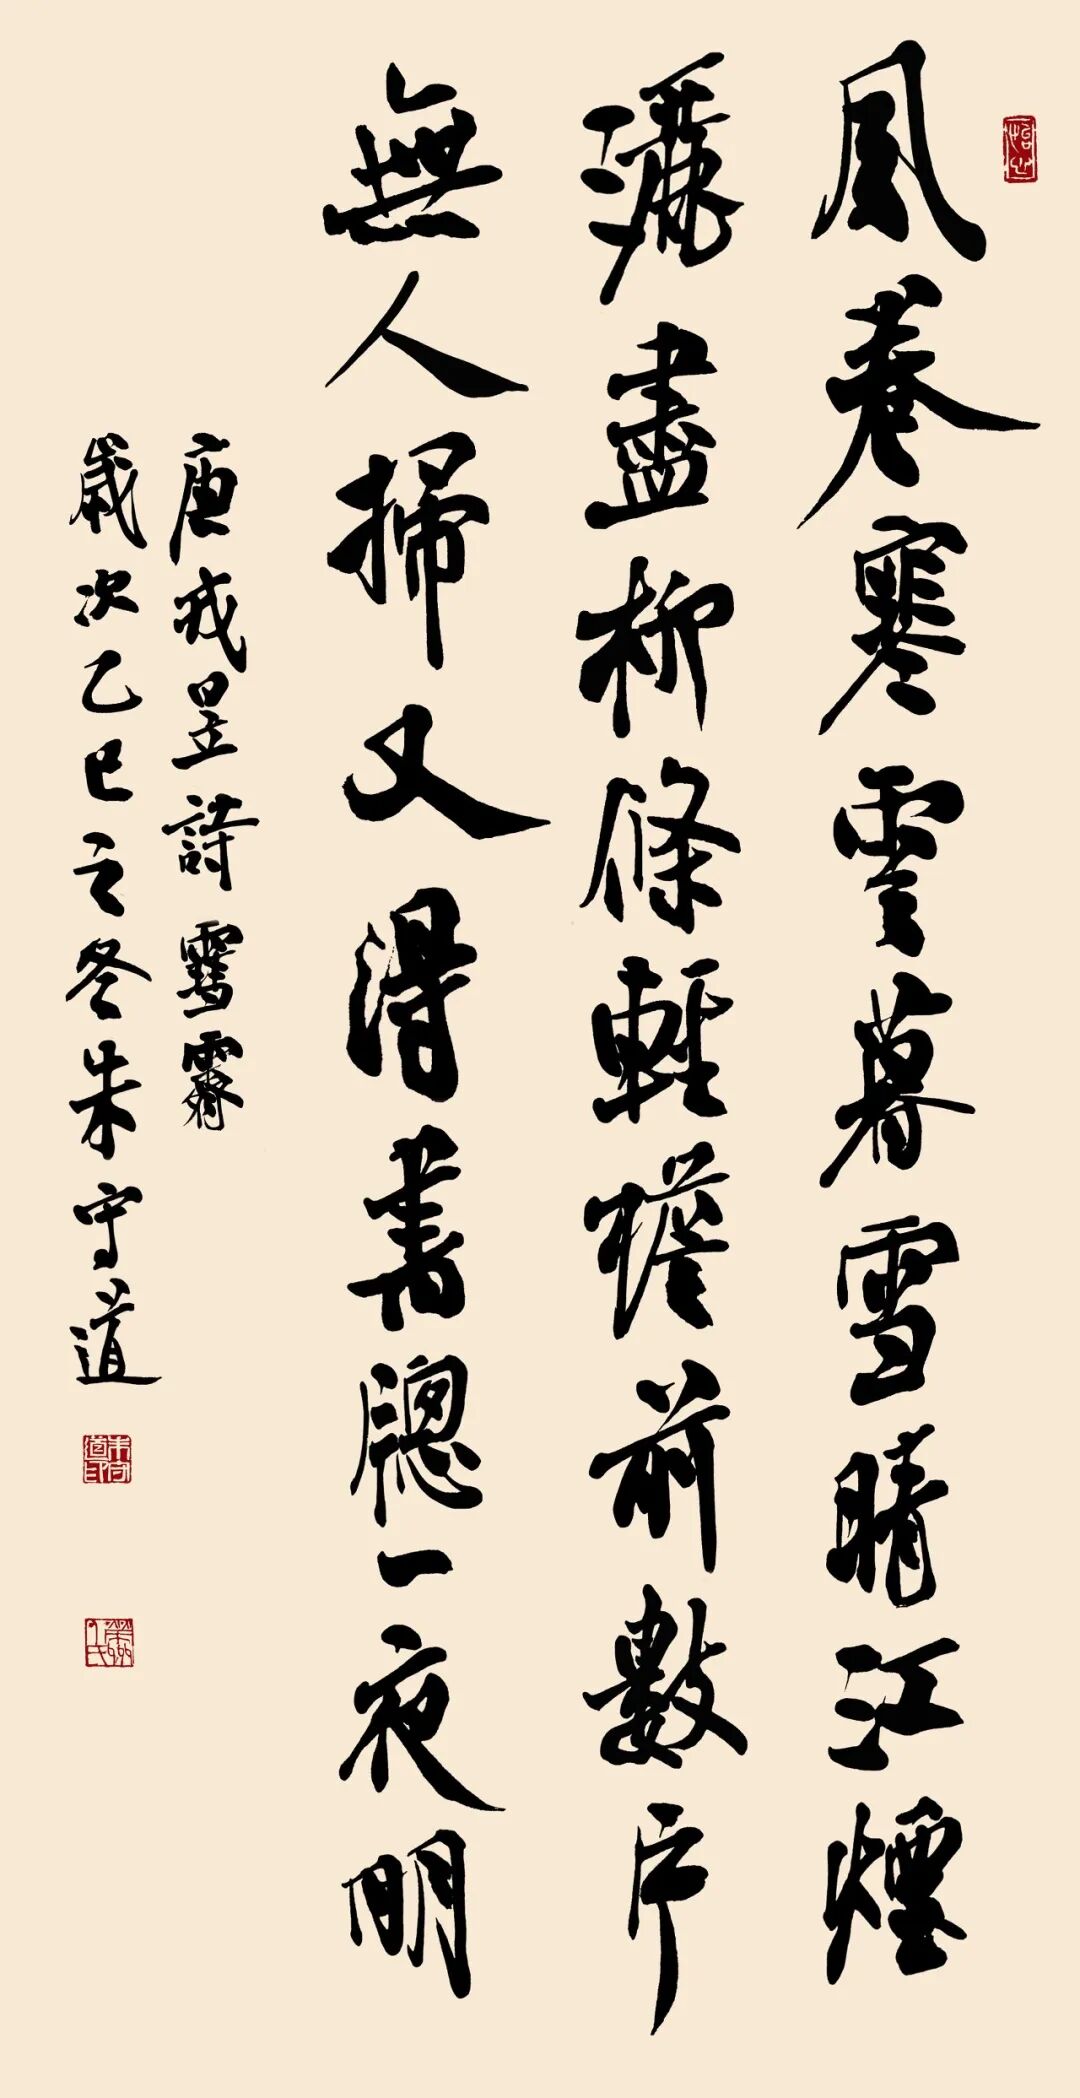 風卷寒雲暮雪晴江煙
灑盡柳條輕檐前數片
無人掃又得書牕一夜明
唐戎昱詩雪霽
歲次乙巳之冬朱守道
朱守道印